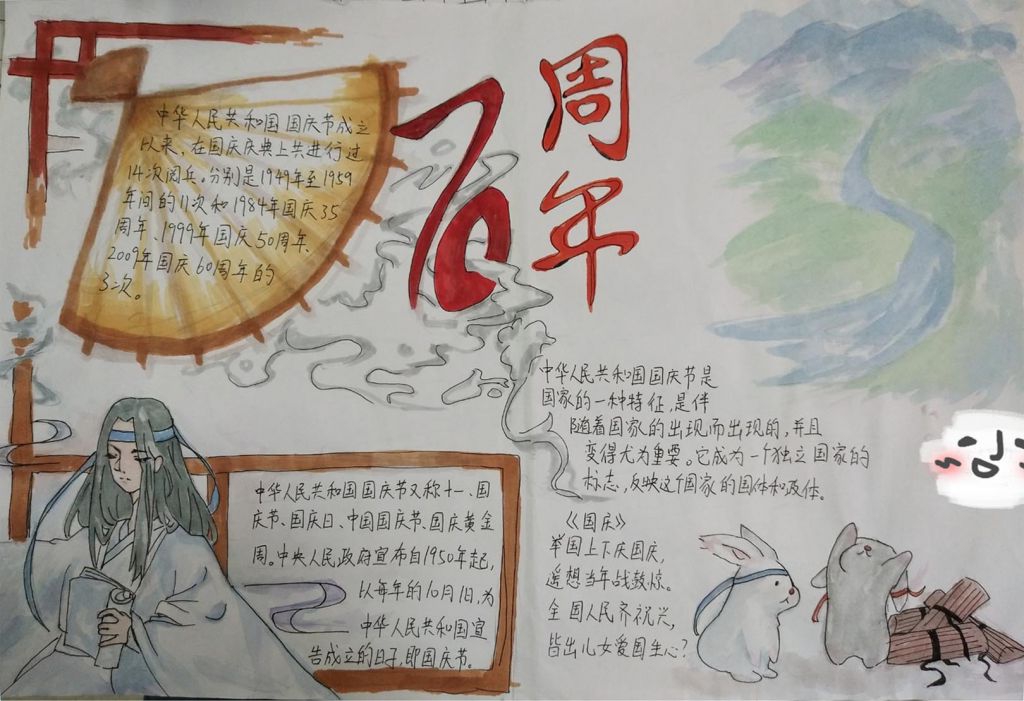 中华人民共和国国庆节成立
以来，在国庆庆典上共进行过
14次阅兵。分别是1949年至1959
年间的11次和1984年国庆35
周年、1999年国庆50周年、
2009年国庆60周年的
3次。
70
周年
中华人民共和国国庆节是
国家的一种特征，是伴
随着国家的出现而出现的，并且
变得尤为重要。它成为一个独立国家的
标志，反映这个国家的国体和政体。
中华人民共和国国庆节又称十一、国
庆节、国庆日、中国国庆节、国庆黄金
周。中央人民政府宣布自1950年起，
以每年的10月1日，为
中华人民共和国宣
告成立的日子，即国庆节。
《国庆》
举国上下庆国庆，
遥想当年战鼓惊。
全国人民齐祝兴，
皆出儿女爱国生心？